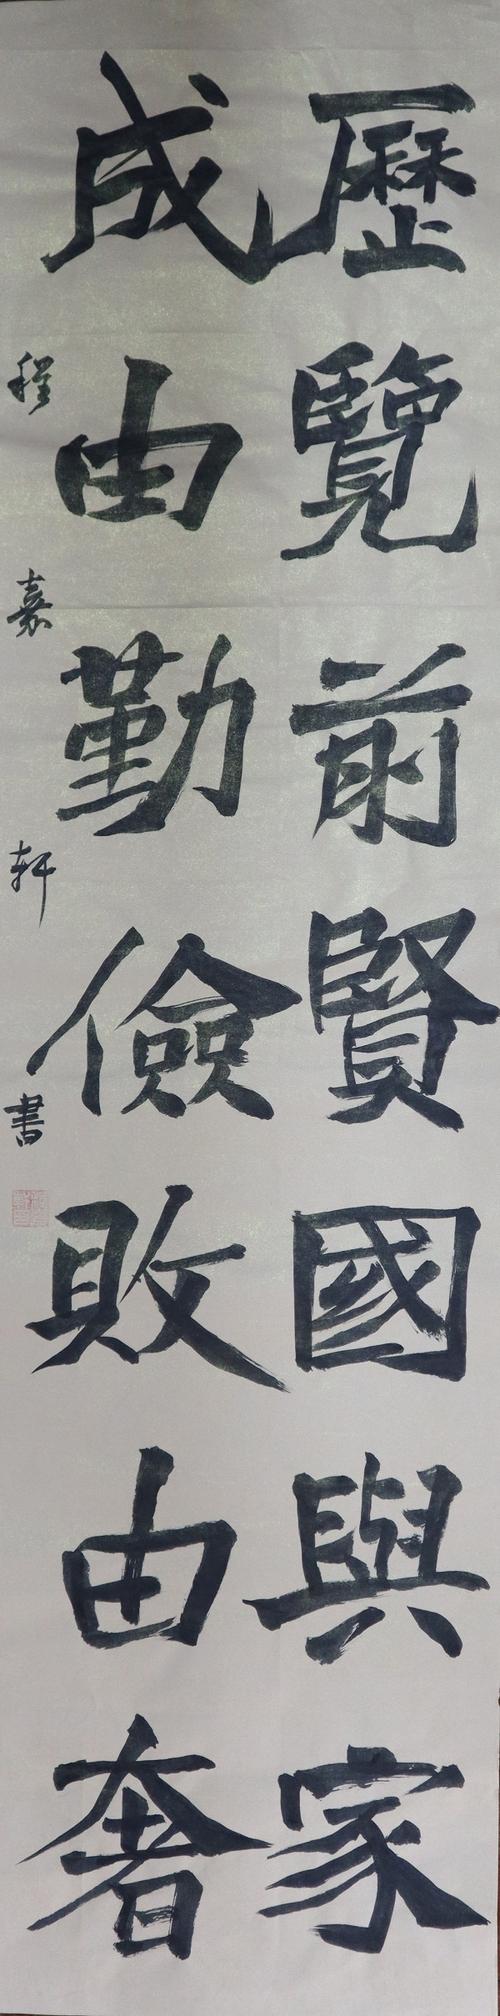 歷覽前賢國與家
成由勤儉敗由奢
程嘉軒書